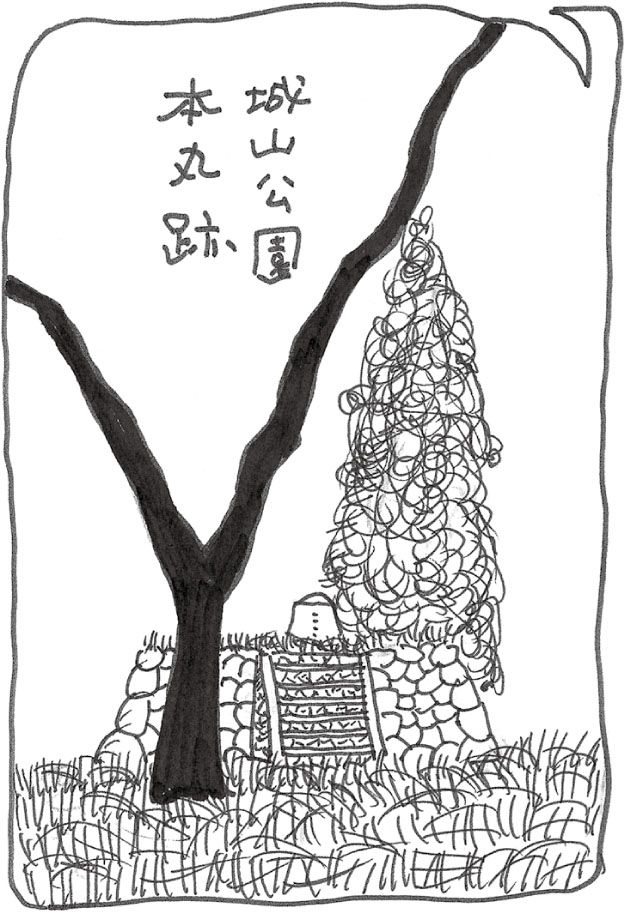 城山公園
本丸跡